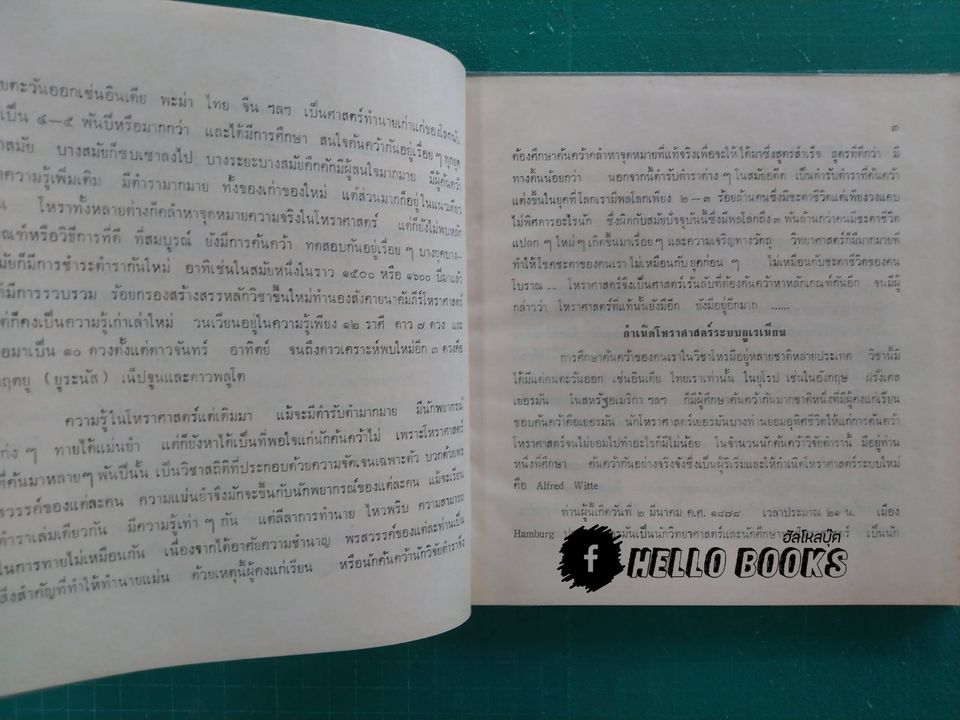 ยตะวันออกเช่นอินเดีย พะม่า ไทย จีน ฯลฯ เป็นศาสตร์ทำนายเก่าแก่ของโลกนับ
เป็น ๔—๕ พันปีหรือมากกว่า และได้มีการศึกษา สนใจค้นคว้ากันอยู่เรื่อยๆ ทุกยุค
สมัย บางสมัยก็ซบเซาลงไป บางระยะบางสมัยคึกคักมีผู้สนใจมากมาย มีผู้ค้นคว้า
ความรู้เพิ่มเติม มีตำรามากมาย ทั้งของเก่าของใหม่ แต่ส่วนมากก็อยู่ในแนวเดียว
น โหราทั้งหลายต่างก็คลำหาจุดหมายความจริงในโหราศาสตร์ แต่ก็ยังไม่พบหลัก
ณฑ์หรือวิธีการที่ดี ที่สมบูรณ์ ยังมีการค้นคว้า ทดสอบกันอยู่เรื่อยๆ บางยุคบาง–
มัยก็มีการชำระตำรากันใหม่ อาทิเช่นในสมัยหนึ่งในราว ๑๕๐๐ หรือ ๑๖๐๐ ปีมาแล้ว
ด้มีการรวบรวม ร้อยกรองสร้างสรรหลักวิชาขึ้นใหม่ทำนองสังคายนาคัมภีร์โหราศาสตร์
ต่ก็คงเป็นความรู้เก่าเล่าใหม่ วนเวียนอยู่ในความรู้เพียง ๑๒ ราศี ดาว ๗ ดวง และ
อมาเป็น ๑๐ ดวงตั้งแต่ดาวจันทร์ อาทิตย์ จนถึงดาวเคราะห์พบใหม่อีก ๓ ดวงคือ
ฤตยู (ยูระนัส) เน็ปจูนและดาวพลูโต
ความรู้ในโหราศาสตร์แต่เดิมมา แม้จะมีตำรับตำมากมาย มีนักพยากรณ์
ก่ง ๆ ทายได้แม่นยำ แต่ก็ยังหาได้เป็นที่พอใจแก่นักค้นคว้าไม่ เพราะโหราศาสตร์
ที่ค้นมาหลายๆ พันปีนั้น เป็นวิชาสถิติที่ประกอบด้วยความจัดเจนเฉพาะตัว บวกด้วยพร
สวรรค์ของแต่ละคน ความแม่นยำจึงมักจะขึ้นกับนักพยากรณ์ของแต่ละคน แม้จะเรียน
ตำราเล่มเดียวกัน มีความรู้เท่า ๆ กัน แต่ลีลาการทำนาย ไหวพริบ ความสามารถ
ในการทายไม่เหมือนกัน เนื่องจากได้อาศัยความชำนาญ พรสวรรค์ของแต่ละท่านเป็น
สิ่งสำคัญที่ทำให้ทำนายแม่น ด้วยเหตุนี้ผู้คงแก่เรียน หรือนักค้นคว้านักวิจัยตำราจึง
๓
ต้องศึกษาค้นคว้าคลำหาจุดหมายที่แท้จริงเพื่อจะให้ได้มาซึ่งสูตรสำเร็จ สูตรที่ดีกว่า มี
ทางตื้นน้อยกว่า นอกจากนี้ตำรับตำราต่าง ๆ ในสมัยอดีต เป็นตำรับตำราที่ค้นคว้า
แต่งขึ้นในยุคที่โลกเรามีพลโลกเพียง ๒ — ๓ ร้อยล้านคนซึ่งมีชะตาชีวิตแต่เพียงวงแคบ
ไม่พิศดารอะไรนัก ซึ่งผิดกับสมัยปัจจุบันนี้ซึ่งมีพลโลกถึง ๓ พันล้านกว่าคนมีชะตาชีวิต
แปลก ๆ ใหม่ ๆ เกิดขึ้นมาเรื่อยๆ และความเจริญทางวัตถุ วิทยาศาสตร์ก็มีมากมายที่
ทำให้โชคชะตาของคนเราไม่เหมือนกับยุคก่อน ๆ ไม่เหมือนกับชะตาชีวิตของคน
โบราณ ... โหราศาสตร์จึงเป็นศาสตร์เร้นลับที่ต้องค้นคว้าหาหลักเกณฑ์กันอีก จนมีผู้
กล่าวว่า โหราศาสตร์ที่แท้นั้นยังมีอีก ยังมีอยู่อีกมาก ......
กำเนิดโหราศาสตร์ระบบยูเรเนียน
การศึกษาค้นคว้าของคนเราในวิชาโหรมีอยู่หลายชาติหลายประเทศ วิชานี้มิ
ได้มีแต่คนตะวันออก เช่นอินเดีย ไทยเราเท่านั้น ในยุโรป เช่นในอังกฤษ ฝรั่งเศส
เยอรมัน ในสหรัฐอเมริกา ฯลฯ ก็มีผู้ศึกษาค้นคว้ากันมากชาติหนึ่งที่มีผู้คงแก่เรียน
ชอบค้นคว้าคือเยอรมัน นักโหราศาสตร์เยอรมันบางท่านยอมอุทิศชีวิตให้แก่การค้นคว้า
โหราศาสตร์จนไม่ยอมไปทำอะไรก็มีไม่น้อย ในจำนวนนักค้นคว้าวิจัยตำรานี้ มีอยู่ท่าน
หนึ่งที่ศึกษา ค้นคว้ากันอย่างจริงจังซึ่งเป็นผู้ริเริ่มและให้กำเนิดโหราศาสตร์ระบบใหม่
คือ Alfred Witte
ท่านผู้นี้เกิดวันที่ ๒ มีนาคม ค.ศ. ๑๘๗๘ เวลาประมาณ ๒๑ น. เมือง
Hamburg เป็นนักวิทยาศาสตร์และนักศึกษา เป็นนัก
ฮัลโหลบุ๊ค
f HELLO BOOKS